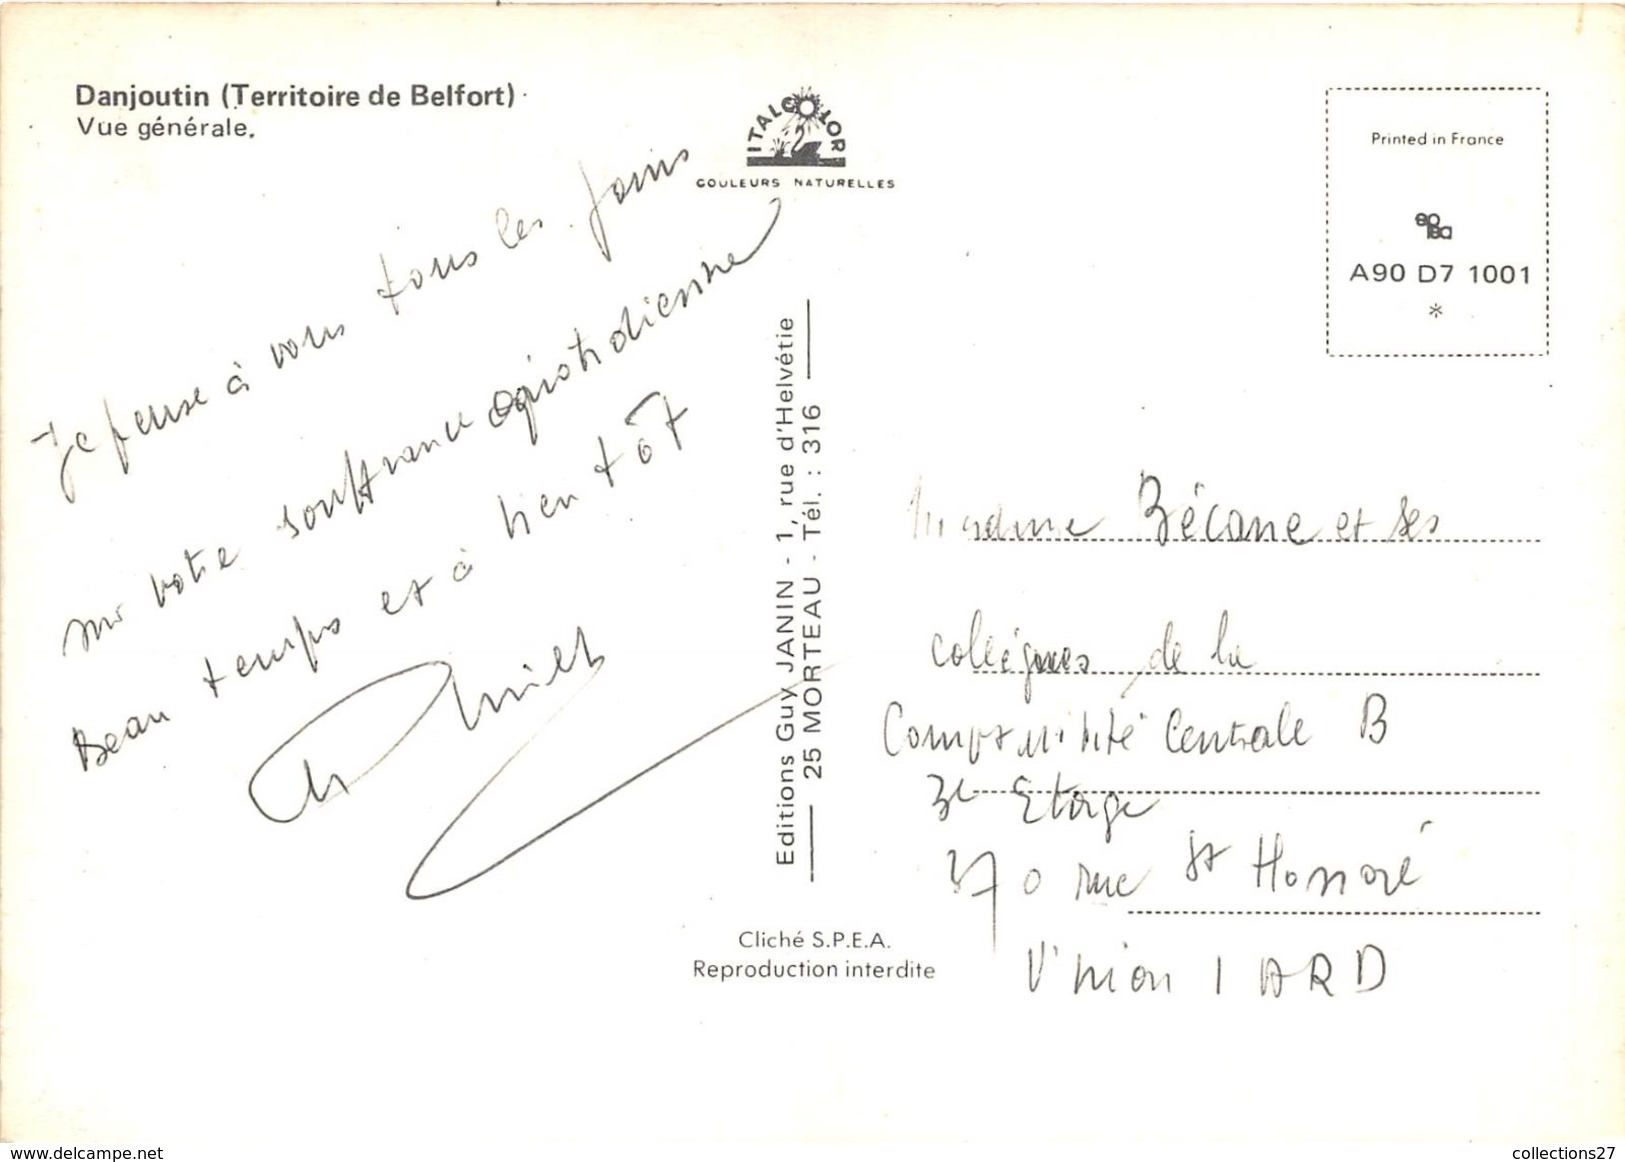 Danjoutin (Territoire de Belfort)
Vue générale.
ITALCOLOR
COULEURS NATURELLES
Printed in France
A90 D7 1001
*
Je pense à vous tous les jours
sur votre souffrance quotidienne
Beau temps et à bien tôt
Editions Guy JANIN - 1, rue d'Helvétie
25 MORTEAU - Tél. : 316
Cliché S.P.E.A.
Reproduction interdite
Madame Bécane et ses
collègues de la
Comptabilité Centrale B
3e Etage
370 rue St Honoré
Union IARD
delcampe.net
collections27